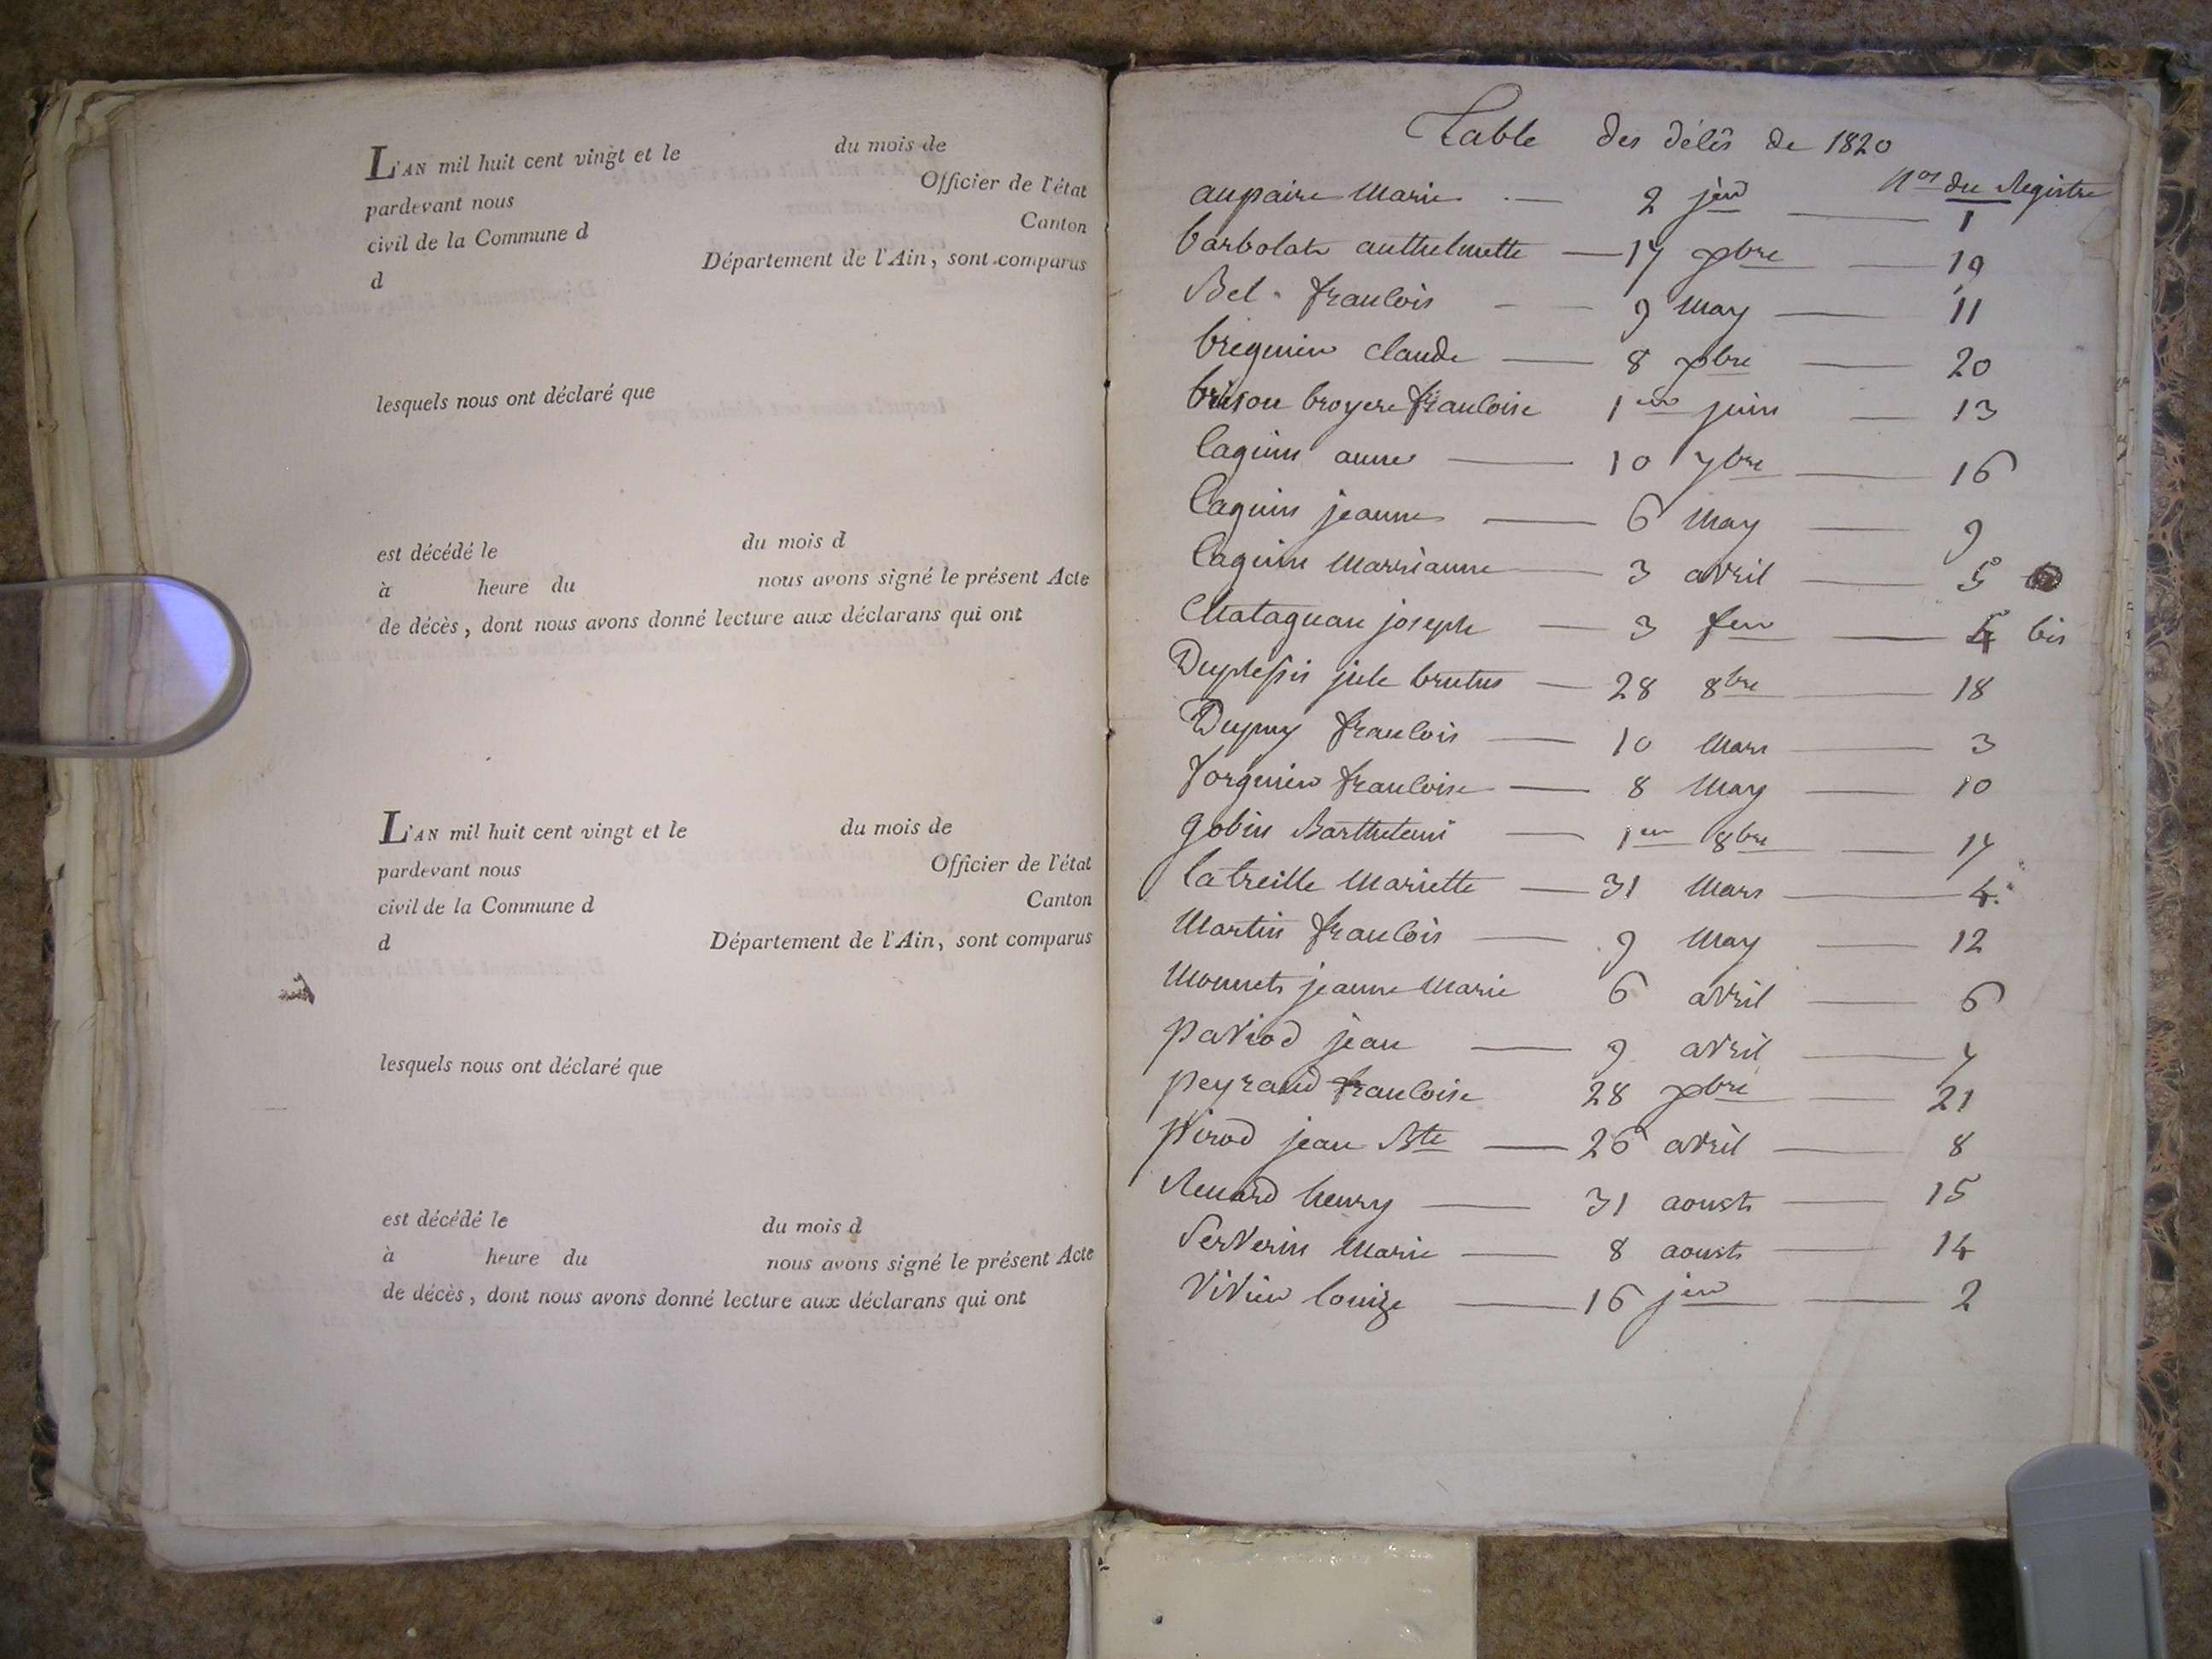 L'AN mil huit cent vingt et le du mois de
pardevant nous Officier de l'état
civil de la Commune d Canton
d Département de l'Ain, sont comparus
lesquels nous ont déclaré que
est décédé le du mois d
à heure du nous avons signé le présent Acte
de décès, dont nous avons donné lecture aux déclarans qui ont
L'AN mil huit cent vingt et le du mois de
pardevant nous Officier de l'état
civil de la Commune d Canton
d Département de l'Ain, sont comparus
lesquels nous ont déclaré que
est décédé le du mois d
à heure du nous avons signé le présent Acte
de décès, dont nous avons donné lecture aux déclarans qui ont
Table des décès de 1820
Nos du Registre
aupaire Marie 2 jer 1
barbolat anthelmette 17 xbre 19
Bel francois 9 May 11
breguin claude 8 xbre 20
brison broyere francoise 1er juin 13
Caguin anne 10 7bre 16
Caguin jeanne 6 May 9
Caguin Marrianne 3 avril 5
Chatagnan joseph 3 fer 4 bis
Duplessis jule brutus 28 8bre 18
Dupuy francois 10 Mars 3
forguin francoise 8 May 10
gobin Barthelemi 1er 8bre 17
latreille Mariette 31 Mars 4
Martin francois 9 May 12
Monnet jeanne Marie 6 avril 6
paviod jean 9 avril 7
peyraud francoise 28 xbre 21
pirod jean Bte 26 avril 8
Renard henry 31 aoust 15
Serverin Marie 8 aoust 14
Vivien louize 16 jer 2